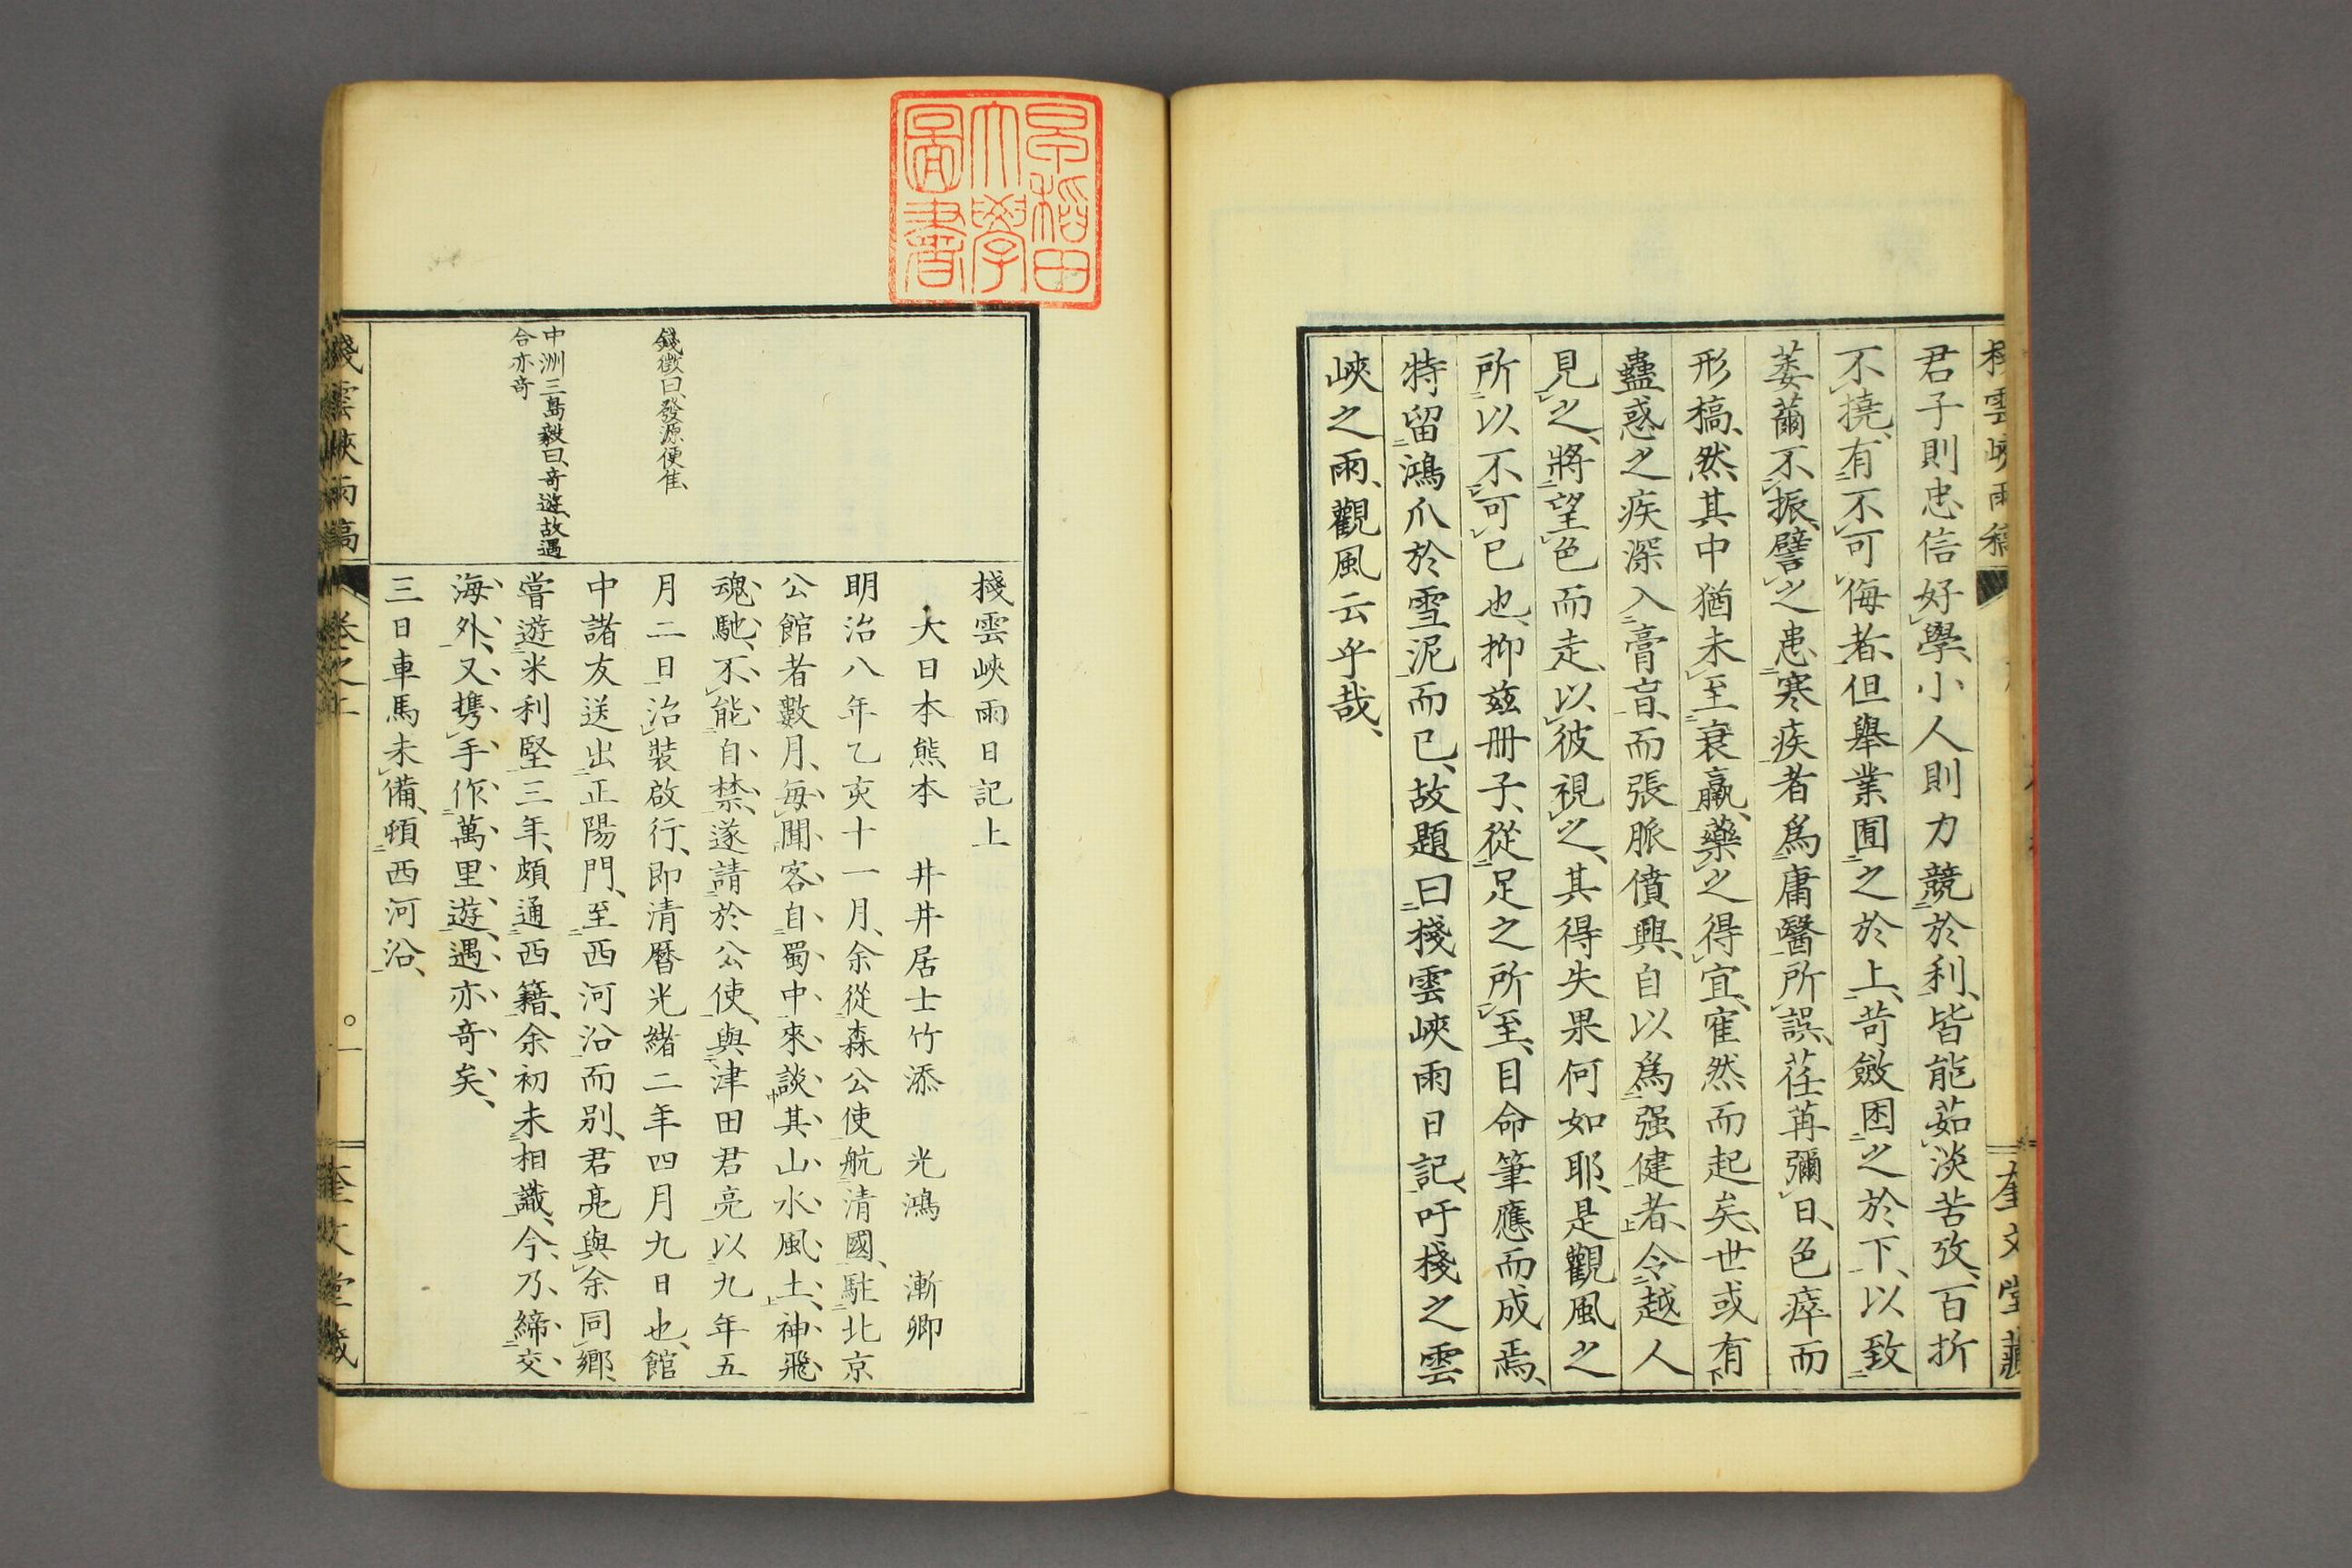 君子則忠信好學、小人則力競於利、皆能茹淡苦攻、百折
不撓、有不可侮者、但舉業囿之於上、苛斂困之於下、以致
萎薾不振、譬之患寒疾者爲庸醫所誤、荏苒彌日、色瘁而
形槁、然其中猶未至衰羸、藥之得宜、寉然而起矣、世或有
蠱惑之疾深入膏肓、而張脈僨興、自以爲强健者、令越人
見之、將望色而走、以彼視之、其得失果何如耶、是觀風之
所以不可已也、抑玆册子、從足之所至、目命筆應而成焉、
特留鴻爪於雪泥而已、故題曰棧雲峽雨日記、吁棧之雲
峽之雨、觀風云乎哉、
奎文堂藏
早稻田
大學
圖書
棧雲峽雨日記上
大日本熊本 井井居士竹添 光鴻 漸卿
明治八年乙亥十一月、余從森公使航清國、駐北京
公館者數月、每聞客自蜀中來談其山水風土、神飛
魂馳、不能自禁、遂請於公使、與津田君亮以九年五
月二日治裝啟行、即清曆光緒二年四月九日也、館
中諸友送出正陽門、至西河沿而別、君亮與余同鄉、
嘗遊米利堅三年、頗通西籍、余初未相識、今乃締交
海外、又携手作萬里遊、遇亦奇矣、
三日車馬未備、頓西河沿、
錢徵曰、發源便隹、
中洲三島毅曰、奇遊、故遇
合亦奇
棧雲峽雨稿
卷之上
一
奎文堂藏